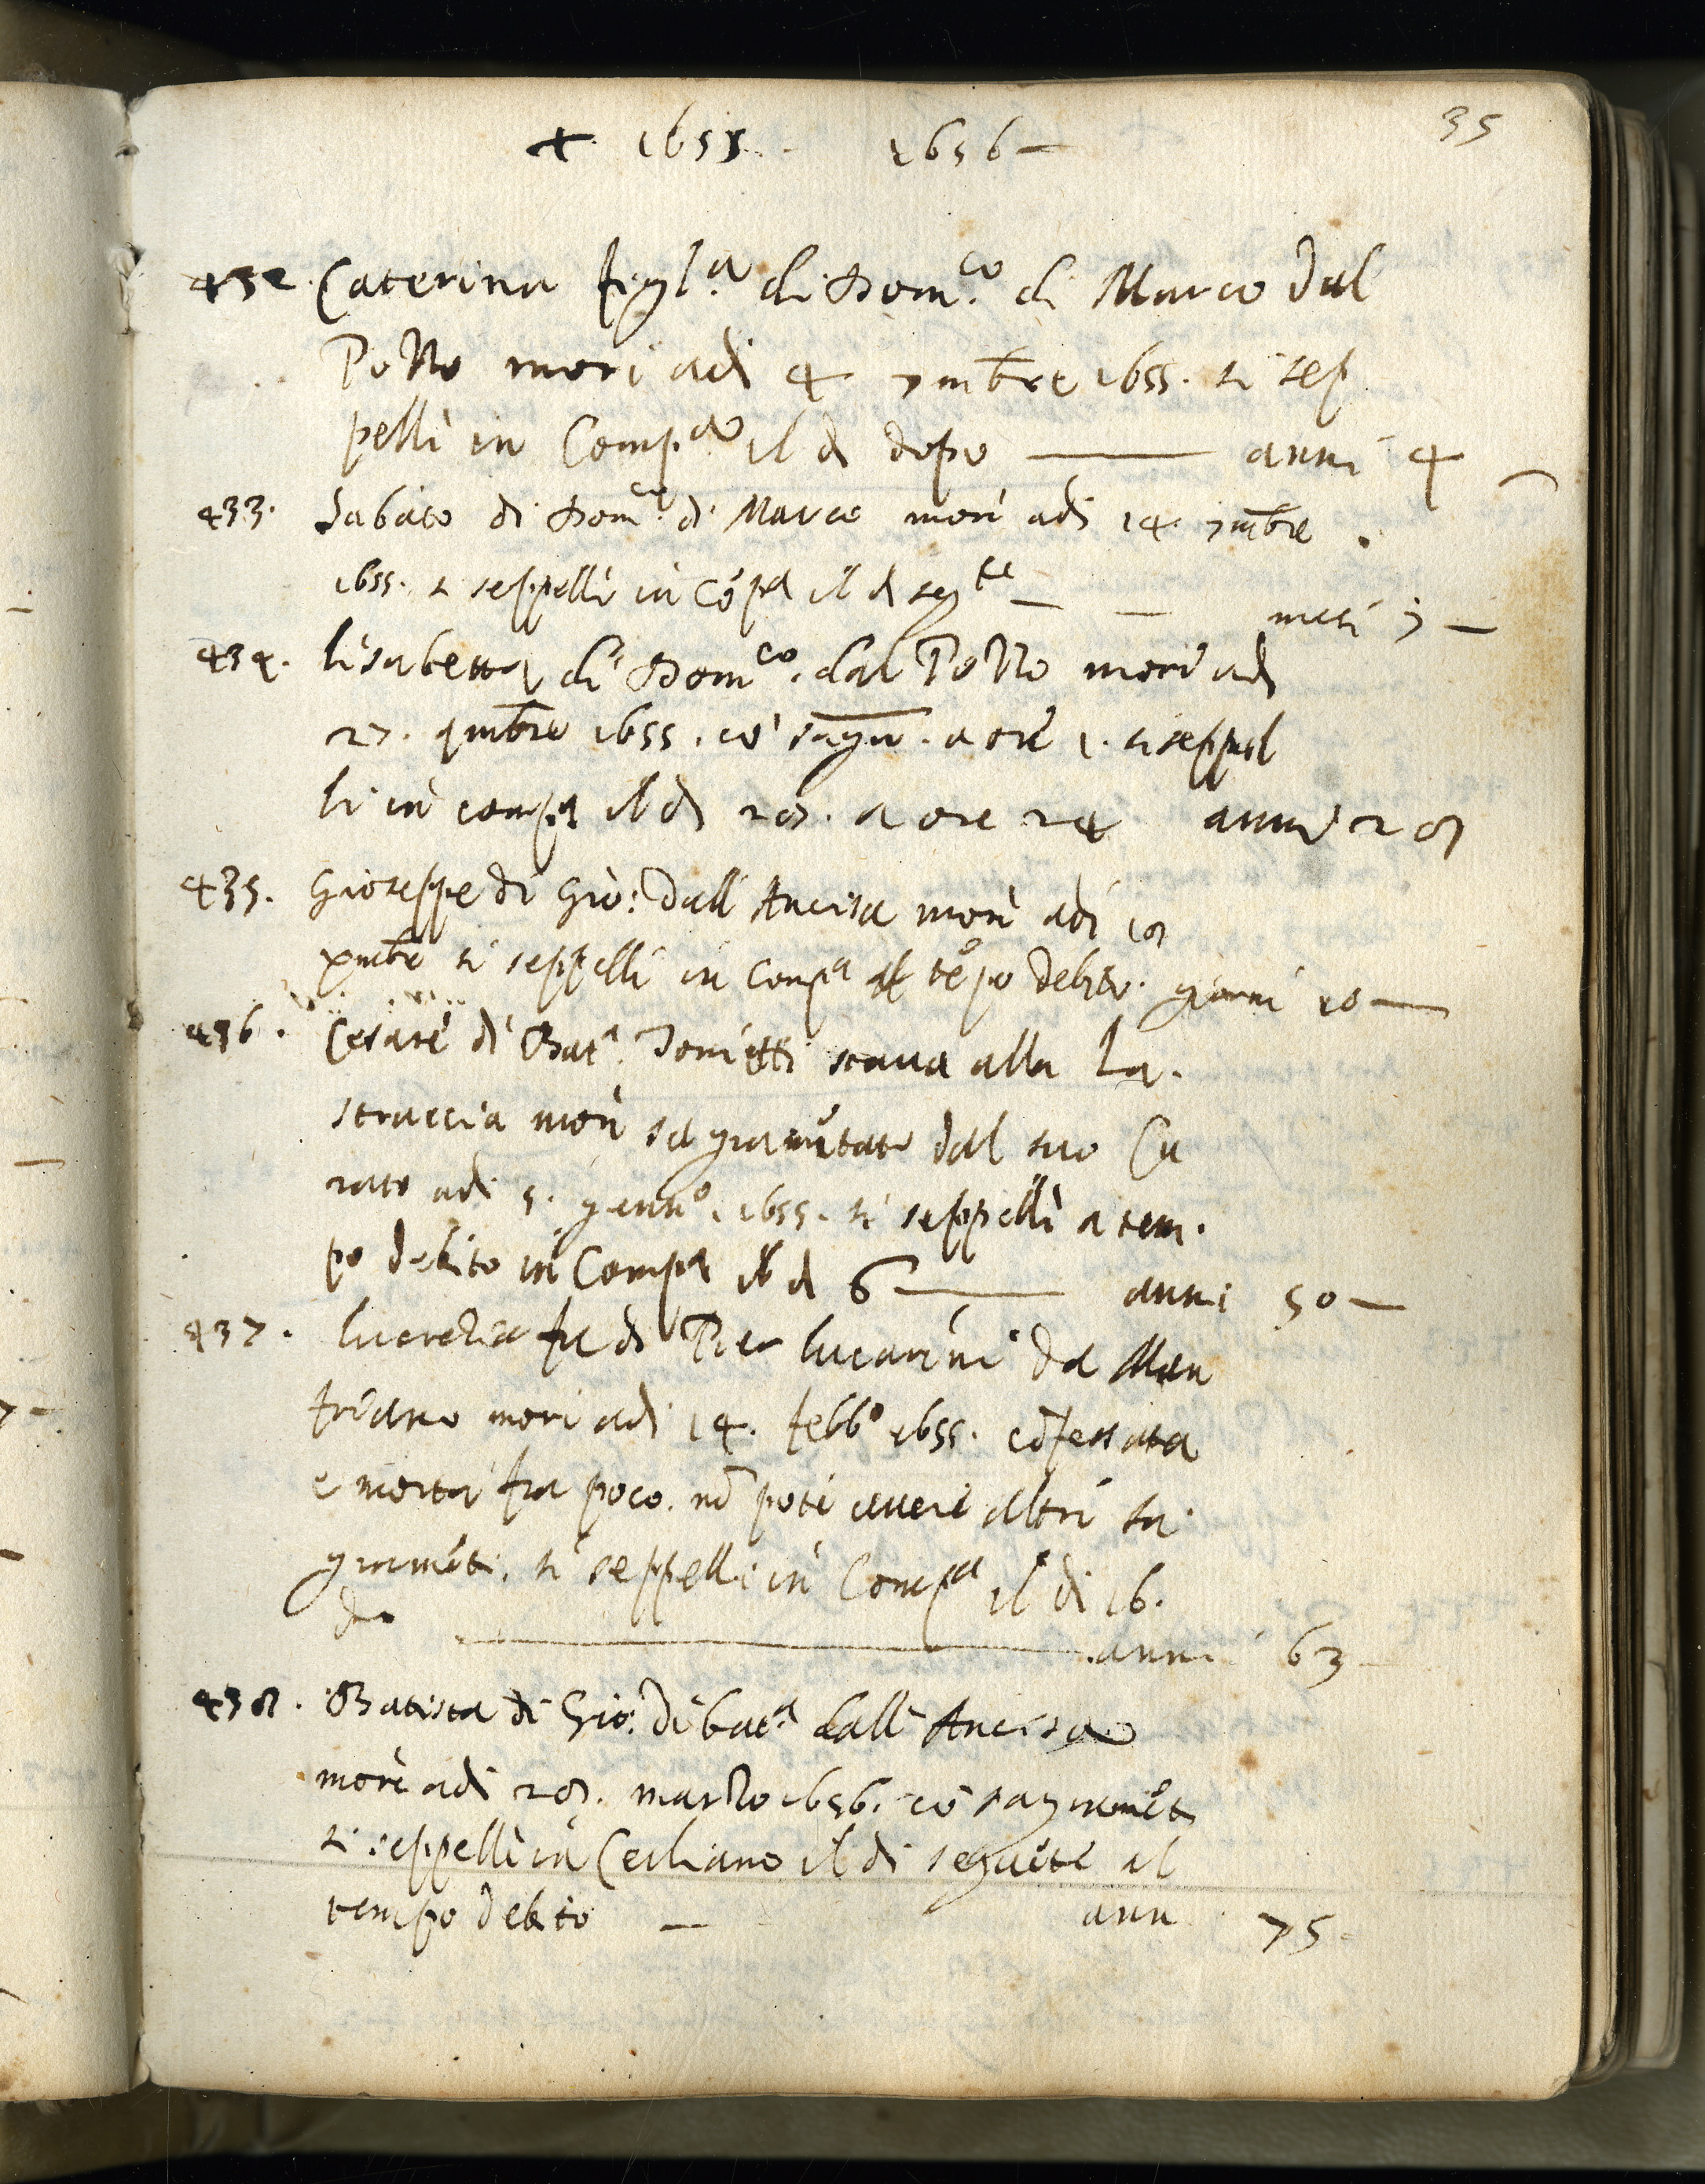 35
+ 1655. 1656 —
432. Caterina figl.a di Dom.co di Marco dal
Pozzo morì adi 4 7mbre 1655. si sep
pellì in Comp.a il dì dopo —— anni 4
433. Sabato di Dom.co di Marco morì adi 14. 7mbre.
1655. si seppellì in Cōp.a il dì seg.te — — mesi 7 —
434. lisabetta di Dom.co dal Pozzo morì adi
27. 9mbre 1655. cō sagrī. a ore 1. si seppel
lì in comp.a il dì 28. a ore 24 anni 28
435. Gioseppe di Gio: dall Ancisa morì adi 18
xmbre si seppellì in Comp.a al tēpo debito. giorni 10 —
436. Cesare di Bat.a Tonietti stava alla La.
straccia morì sagramētato dal suo Cu
rato adi 5. genn.o 1655. si seppellì a tem.
po debito in Comp.a il dì 6 —— anni 50 —
437. lucrezia fu di Pier lucarini da Mon
friano morì adi 14. febb.o 1655. cōfessata
e morta fra poco. nō poté avere altri sa
gramēti. si seppellì in Comp.a il di 16.
do —— anni 63
438. Batista di Gio: di bat.a dall Ancisa
morì adi 28. marzo 1656. cō sagramēt
si seppellì in Ceciliano il di seguēte al
tempo debito — ann 75